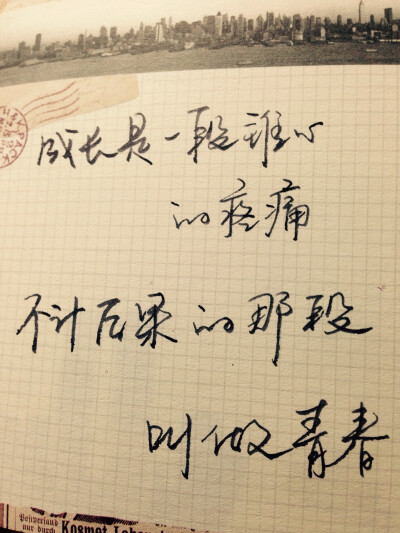 成长是一段锥心
的疼痛
不计后果的那段
叫做青春
Postversand
nur durch
Kosmet